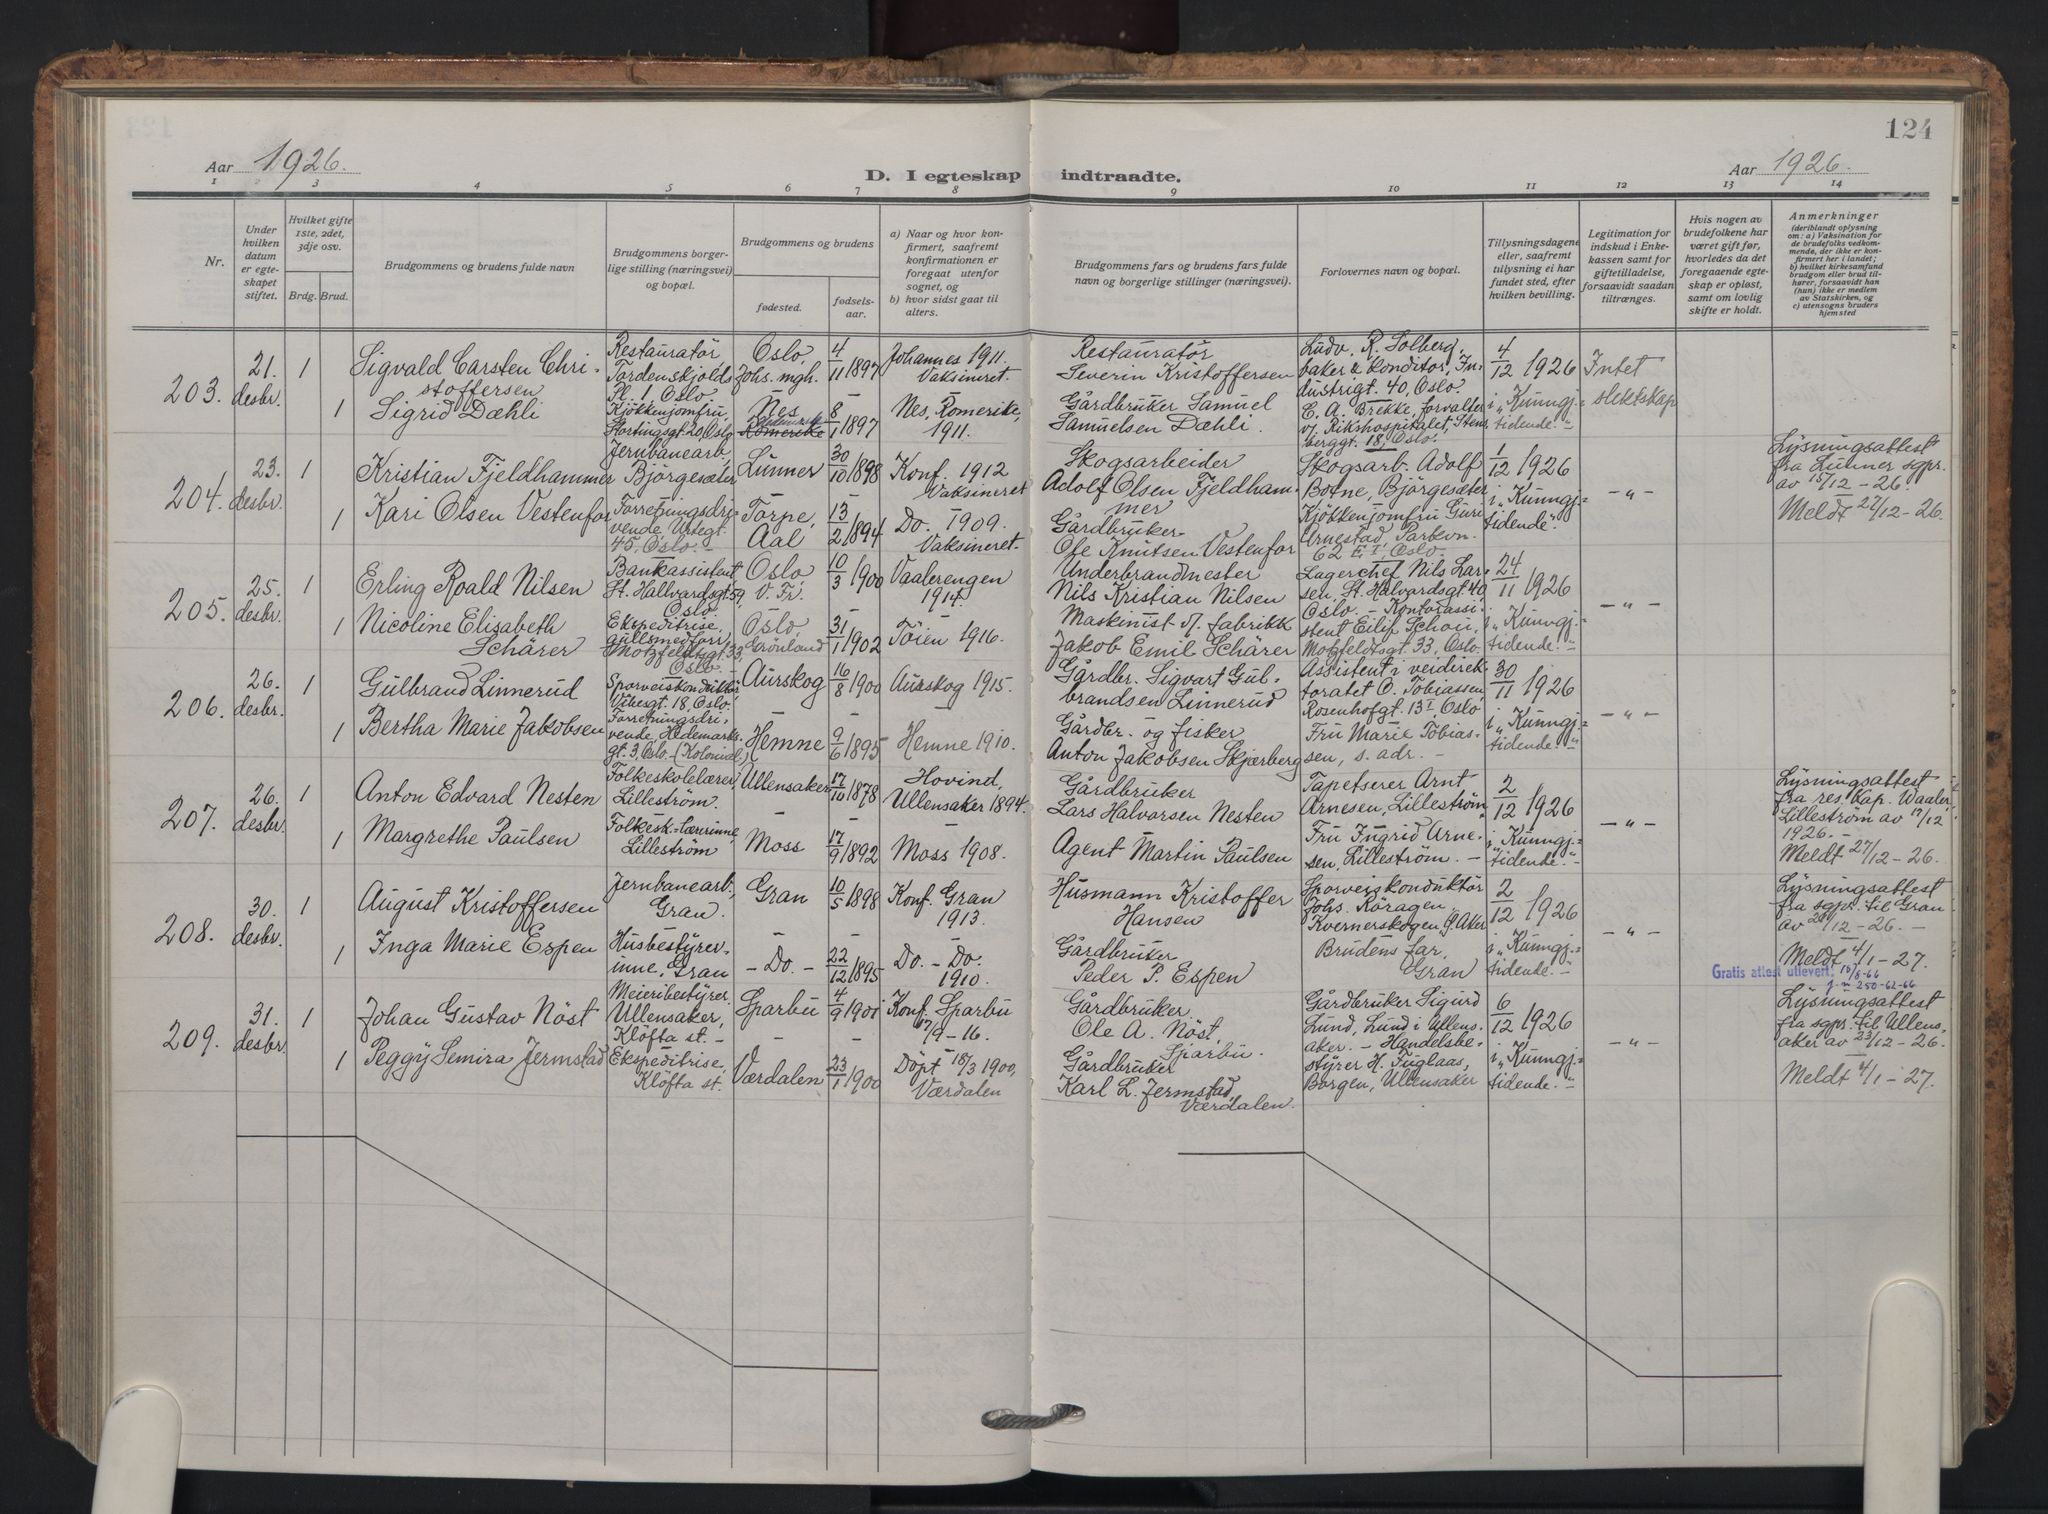 124
Aar 1926. D. I egteskap indtraadte. Aar 1926.
1 2 3 4 5 6 7 8 9 10 11 12 13 14
Nr.
Under
hvilken
datum
er egte-
skapet
stiftet.
Hvilket gifte
1ste, 2det,
3dje osv.
Brdg. Brud.
Brudgommens og brudens fulde navn
Brudgommens borger-
lige stilling (næringsvei)
og bopæl.
Brudgommens og brudens
fødested.
fødsels-
aar.
a) Naar og hvor kon-
firmert, saafremt
konfirmationen er
foregaat utenfor
sognet, og
b) hvor sidst gaat til
alters.
Brudgommens fars og brudens fars fulde
navn og borgerlige stillinger (næringsvei).
Forlovernes navn og bopæl.
Tillysningsdagene
eller, saafremt
tillysning ei har
fundet sted, efter
hvilken bevilling.
Legitimation for
indskud i Enke-
kassen samt for
giftetilladelse,
forsaavidt saadan
tiltrænges.
Hvis nogen av
brudefolkene har
været gift før,
hvorledes da det
foregaaende egte-
skap er opløst,
samt om lovlig
skifte er holdt.
Anmerkninger
(deriblandt oplysning
om: a) Vaksination for
de brudefolks vedkom-
mende, der ikke er kon-
firmert her i landet;
b) hvilket kirkesamfund
brudgom eller brud til-
hører, forsaavidt han
(hun) ikke er medlem
av Statskirken, og
c) utensogns bruders
hjemsted
203.
21.
desbr.
1
Sigvald Carsten Chri-
stoffersen
Restauratør
Tordenskjolds
Pl. 1, Oslo.
Oslo,
Johs. mgh.
4/11 1897
Johannes 1911.
Vaksineret.
Restauratør
Severin Kristoffersen
Ludv. R. Solberg,
baker & konditor, In-
dustrigt. 40, Oslo.
4/12 1926
i "Kunngj.=
tidende."
Intet
slektskap
1
Sigrid Dæhli
Kjøkkenjomfru,
Stortingsgt. 20, Oslo
Nes
Hedemark
Romerike
8/1 1897
Nes, Romerike,
1911.
Gårdbruker Samuel
Samuelsen Dæhli.
E. A. Brekke, forvalter
v. Rikshospitalet, Stens-
berggt. 18, Oslo.
204.
23.
desbr.
1
Kristian Fjeldhammer
Jernbanearb.,
Bjørgesæter
Lunner
30/10 1898
Konf. 1912
Vaksineret
Skogsarbeider
Adolf Olsen Fjeldham-
mer
Skogsarb. Adolf
Botne, Bjørgesæter
1/12 1926
i "Kunngj.=
tidende."
- " -
Lysningsattest
fra Lunner sgpr.
av 15/12 - 26.
Meldt 27/12 - 26.
1
Kari Olsen Vestenfor
Forretningsdri-
vende, Urtegt.
45, Oslo.
Torpe,
Aal
13/2 1894
Do. 1909.
Vaksineret.
Gårdbruker
Ole Knutsen Vestenfor
Kjøkkenjomfru Guri
Arnestad, Parkvn.
62 E I, Oslo.
205.
25.
desbr.
1
Erling Roald Nilsen
Bankassistent,
St. Hallvardsgt. 59,
Oslo
Oslo
V. Fr.
10/3 1900
Vaalerengen
1914.
Underbrandmester
Nils Kristian Nilsen
Lagerchef Nils Lar-
sen, St. Halvardsgt. 40
Oslo. - Kontorassi-
24/11 1926
i "Kunngj.=
tidende."
- " -
1
Nicoline Elisabeth
Schärer
Ekspeditrise,
gullsmedforr.,
Motzfeldtsgt. 33,
Oslo
Oslo,
Grønland
31/1 1902
Töien 1916.
Maskinist v. fabrikk
Jakob Emil Schärer
stent Eilif Schou,
Motzfeldtsgt. 33, Oslo.
206.
26.
desbr.
1
Gulbrand Linnerud
Sporveiskonduktør
Vibesgt. 18, Oslo.
Aurskog
16/8 1900
Aurskog 1915.
Gårdbr. Sigvart Gul-
brandsen Linnerud
Assistent i veidirek-
toratet O. Tobiassen,
Rosenhofgt. 13 I, Oslo
30/11 1926
i "Kunngj.=
tidende."
- " -
1
Bertha Marie Jakobsen
Forretningsdri-
vende, Hedemarks-
gt. 3, Oslo. (Kolonial.)
Hemne
9/6 1895
Hemne 1910.
Gårdbr. og fisker
Anton Jakobsen Skjærberg
Fru Marie Tobias-
sen, s. adr.
207.
26.
desbr.
1
Anton Edvard Nesten
Folkeskolelærer,
Lillestrøm.
Ullensaker
17/10 1878
Hovind,
Ullensaker 1894.
Gårdbruker
Lars Halvorsen Nesten
Tapetserer Arnt
Arnesen, Lillestrøm
2/12 1926
i "Kunngj.=
tidende."
- " -
Lysningsattest
fra res. kap. Waaler,
Lillestrøm av 17/12
1926. -
Meldt 27/12 - 26.
1
Margrethe Paulsen
Folkesk.=lærerinne,
Lillestrøm
Moss
17/9 1892
Moss 1908.
Agent Martin Paulsen
Fru Ingrid Arne-
sen, Lillestrøm. -
208.
30.
desbr.
1
August Kristoffersen
Jernbanearb.,
Gran.
Gran
10/5 1898
Konf. Gran
1913.
Husmann Kristoffer
Hansen
Sporveiskonduktør
Johs. Røragen,
Kvernerskogen, Ø. Aker
2/12 1926
i "Kunngj.=
tidende."
- " -
Lysningsattest
fra sgpr. til Gran
av 28/12 - 26. -
Meldt 4/1 - 27.
Gratis attest utlevert. 15/8-66
j.n 250-62-66
1
Inga Marie Espen
Husbestyrer-
inne, Gran
- Do. -
22/12 1895
Do. - Do.
1910.
Gårdbruker
Peder P. Espen
Brudens far,
Gran
209.
31.
desbr.
1
Johan Gustav Nöst
Meieribestyrer
Ullensaker,
Klöfta st. -
Sparbu
4/9 1901
Konf. Sparbu
17/9 - 16.
Gårdbruker
Ole A. Nöst,
Sparbu.
Gårdbruker Sigurd
Lund, Lund i Ullens-
aker. - Handelsbe-
6/12 1926
i "Kunngj.=
tidende."
- " -
Lysningsattest
fra sgpr. til Ullens-
aker av 23/12 - 26.
Meldt 4/1 - 27.
1
Peggy Semira Jermstad
Ekspeditrise,
Klöfta st.
Værdalen
23/1 1900
Döpt 18/3 1900,
Værdalen
Gårdbruker
Karl L. Jermstad,
Værdalen.
styrer H. Fuglaas,
Borgen, Ullensaker